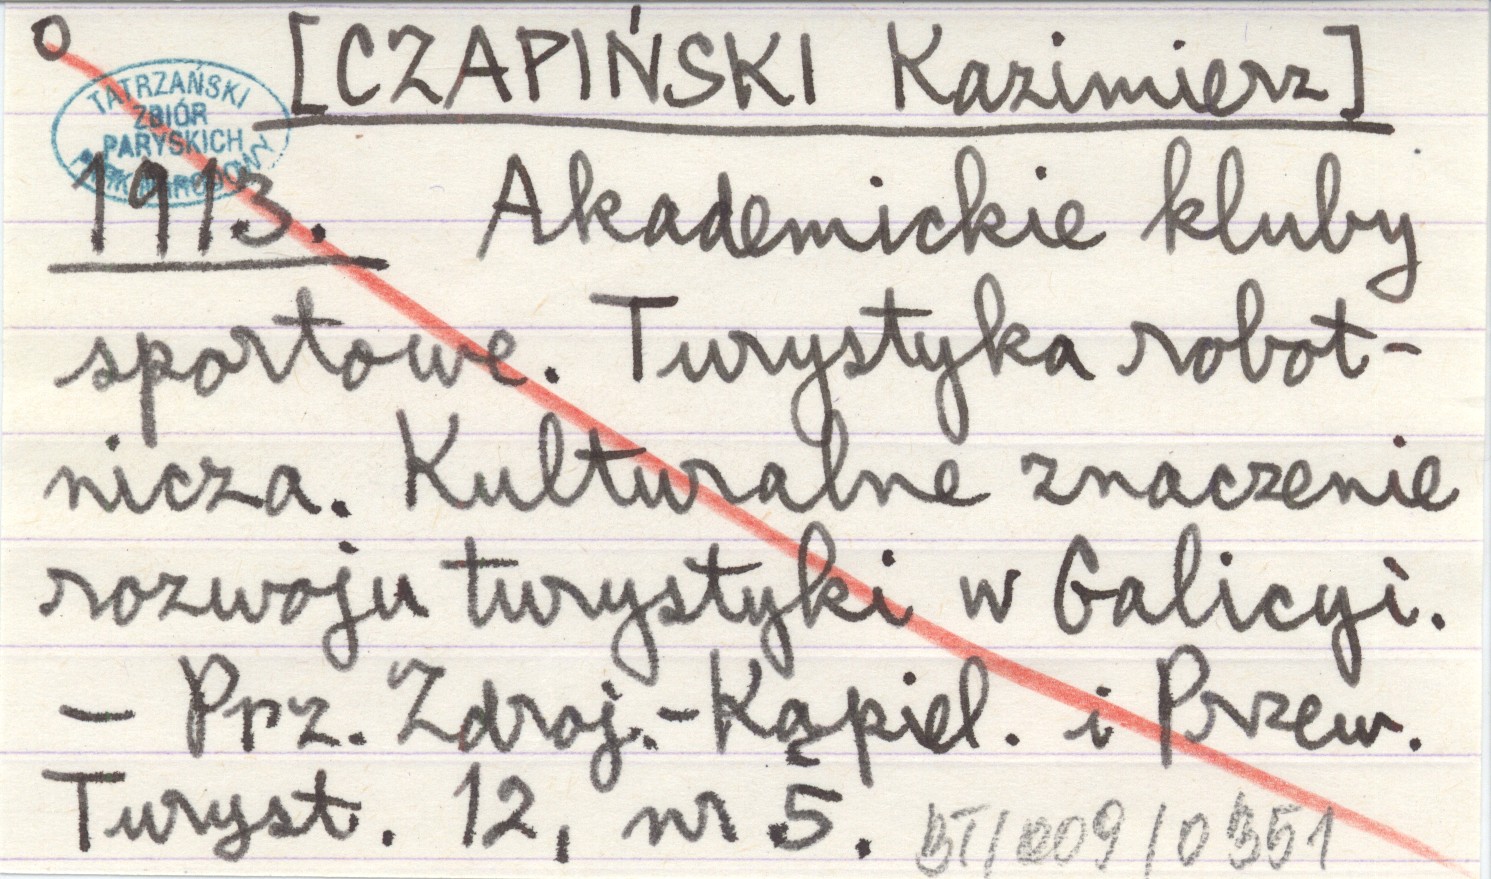 [CZAPIŃSKI Kazimierz]
TATRZAŃSKI
ZBIÓR
PARYSKICH
1913. Akademickie kluby
sportowe. Turystyka robot-
nicza. Kulturalne znaczenie
rozwoju turystyki w Galicyi.
— Prz. Zdroj.-Kąpiel. i Przew.
Turyst. 12, nr 5.